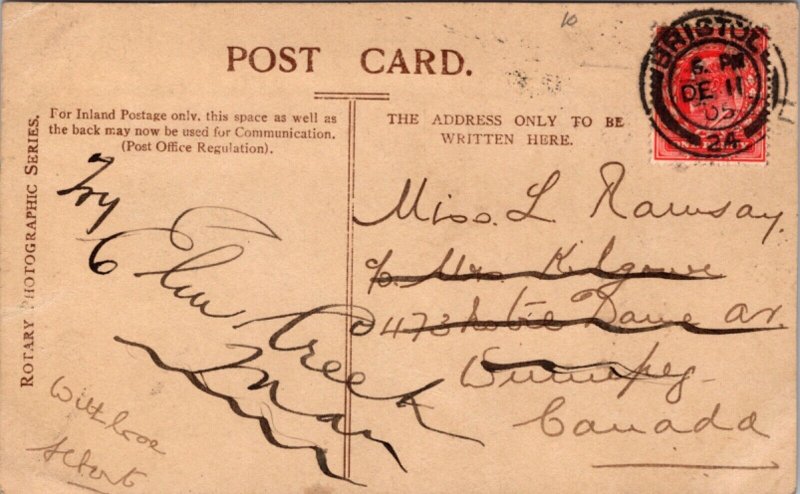 POST CARD.
For Inland Postage only, this space as well as
the back may now be used for Communication.
(Post Office Regulation).
THE ADDRESS ONLY TO BE
WRITTEN HERE.
ROTARY PHOTOGRAPHIC SERIES.
BRISTOL
6. PM
DE 11
05
24
Miss. L Ramsay.
c/o Mrs Kilgour
473 Notre Dame Av.
Winnipeg.
Canada
Try
Elm Creek
Man
With love
Albert
10